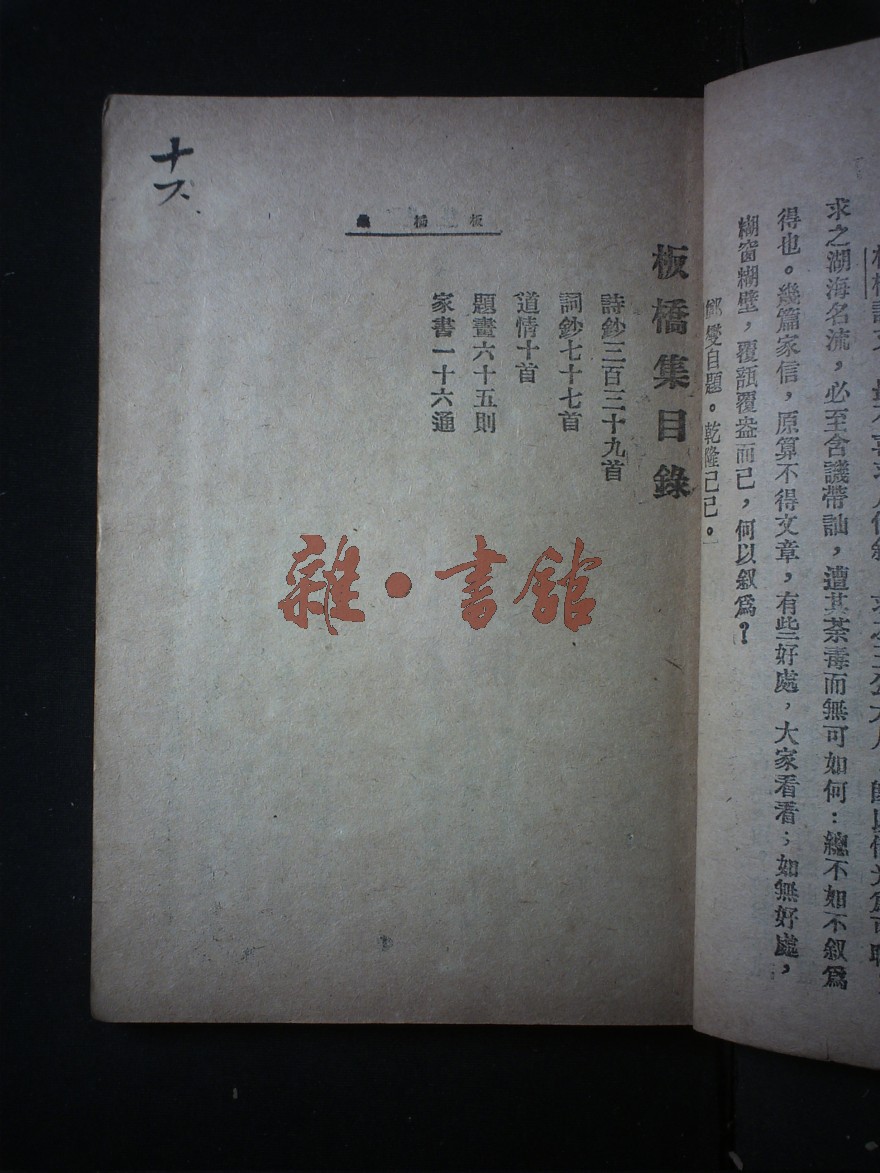 求之湖海名流，必至含譏帶訕，遭其荼毒而無可如何：總不如不叙爲
得也。幾篇家信，原算不得文章，有些好處，大家看看；如無好處，
糊窗糊壁，覆瓿覆盎而已，何以叙爲？
鄭燮自題。乾隆己巳。
板橋集目錄
詩鈔三百三十九首
詞鈔七十七首
道情十首
題畫六十五則
家書一十六通
板橋集
雜·書館